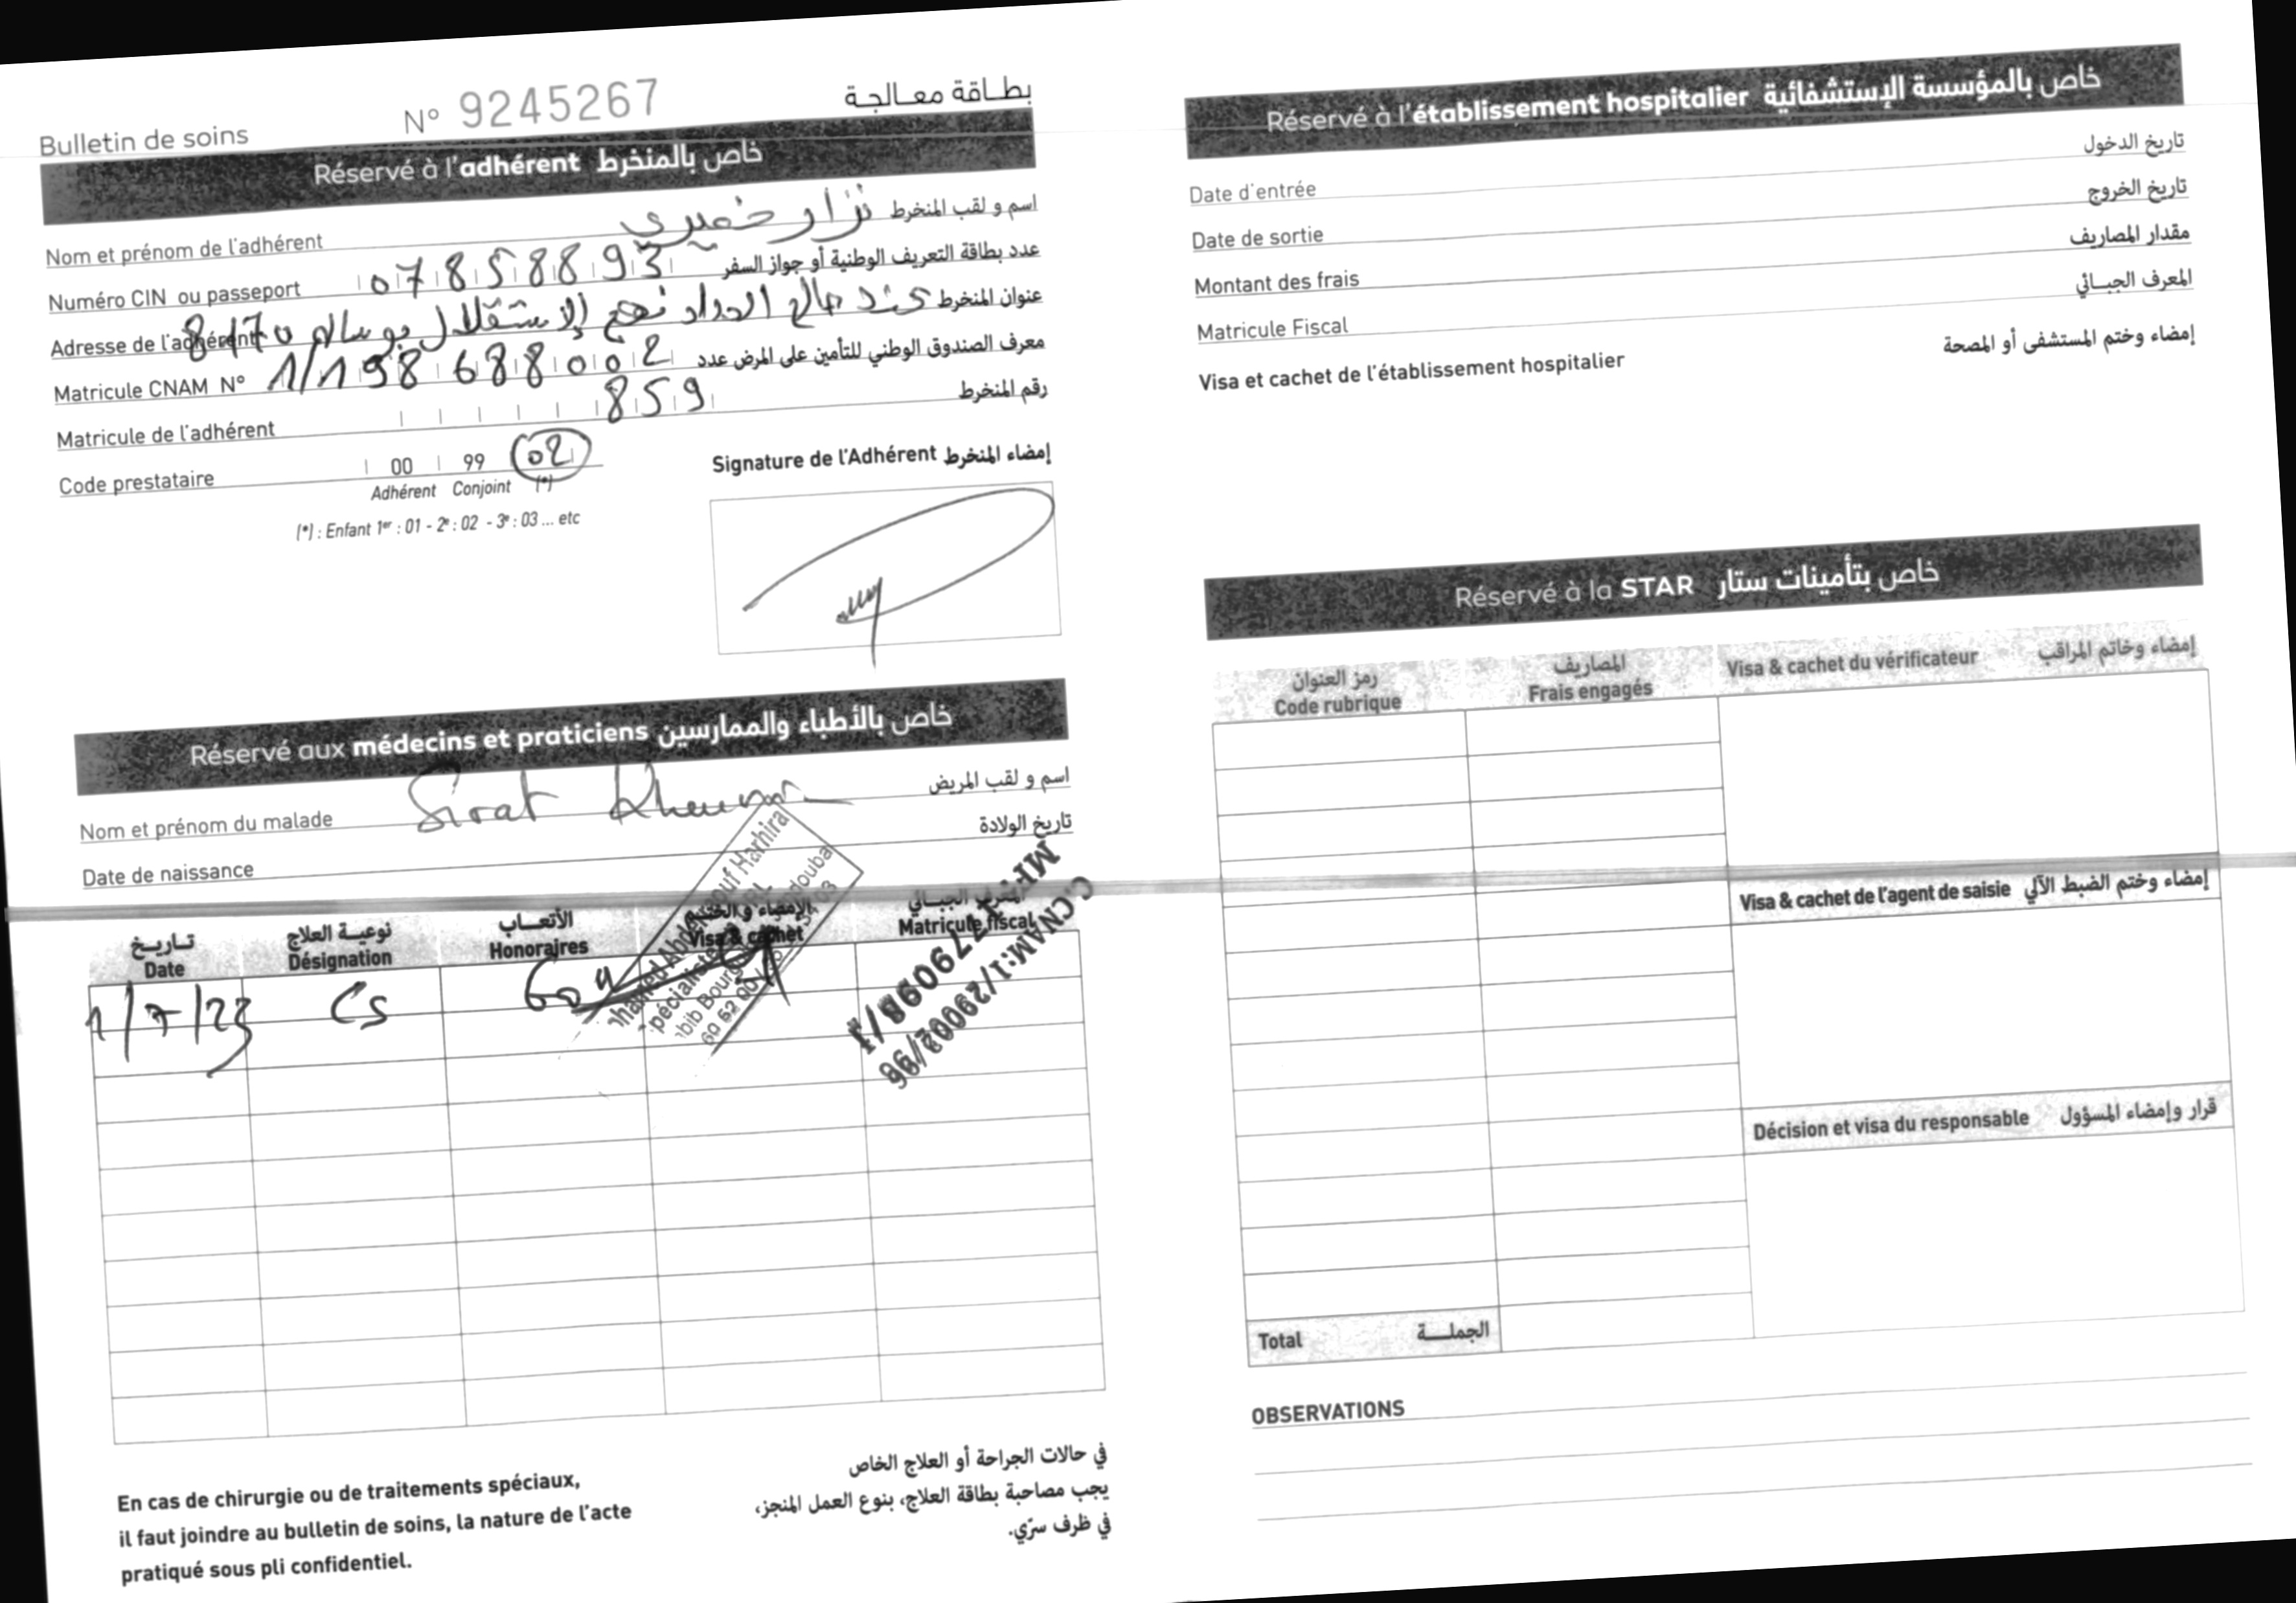 Bulletin de soins N° 9245267 بطاقة معالجة
Réservé à l'adhérent خاص بالمنخرط
Nom et prénom de l'adhérent نزار خميري اسم و لقب المنخرط
Numéro CIN ou passeport 07858893 عدد بطاقة التعريف الوطنية أو جواز السفر
Adresse de l'adhérent عند صالح الحداد نهج الإستقلال بوسالم 8170 عنوان المنخرط
Matricule CNAM N° 1/198688002 معرف الصندوق الوطني للتأمين على المرض عدد
Matricule de l'adhérent 859 رقم المنخرط
Code prestataire 00 99 02
Adhérent Conjoint (*)
(*) : Enfant 1er : 01 - 2e : 02 - 3e : 03 ... etc
Signature de l'Adhérent إمضاء المنخرط
Réservé aux médecins et praticiens خاص بالأطباء والممارسين
Nom et prénom du malade Sirat اسم و لقب المريض
Date de naissance تاريخ الولادة
تاريخ نوعية العلاج الأتعاب الإمضاء و الختم المعرف الجبائي
Date Désignation Honoraires Visa & cachet Matricule fiscal
1/7/23 Cs 60
C.CNAM:1/29002/96
En cas de chirurgie ou de traitements spéciaux,
il faut joindre au bulletin de soins, la nature de l'acte
pratiqué sous pli confidentiel.
في حالات الجراحة أو العلاج الخاص
يجب مصاحبة بطاقة العلاج، بنوع العمل المنجز،
في ظرف سرّي.
Réservé à l'établissement hospitalier خاص بالمؤسسة الإستشفائية
Date d'entrée تاريخ الدخول
Date de sortie تاريخ الخروج
Montant des frais مقدار المصاريف
Matricule Fiscal المعرف الجبائي
Visa et cachet de l'établissement hospitalier إمضاء وختم المستشفى أو المصحة
Réservé à la STAR خاص بتأمينات ستار
رمز العنوان المصاريف
Code rubrique Frais engagés Visa & cachet du vérificateur إمضاء وخاتم المراقب
Visa & cachet de l'agent de saisie إمضاء وختم الضبط الآلي
Décision et visa du responsable قرار وإمضاء المسؤول
Total الجملة
OBSERVATIONS